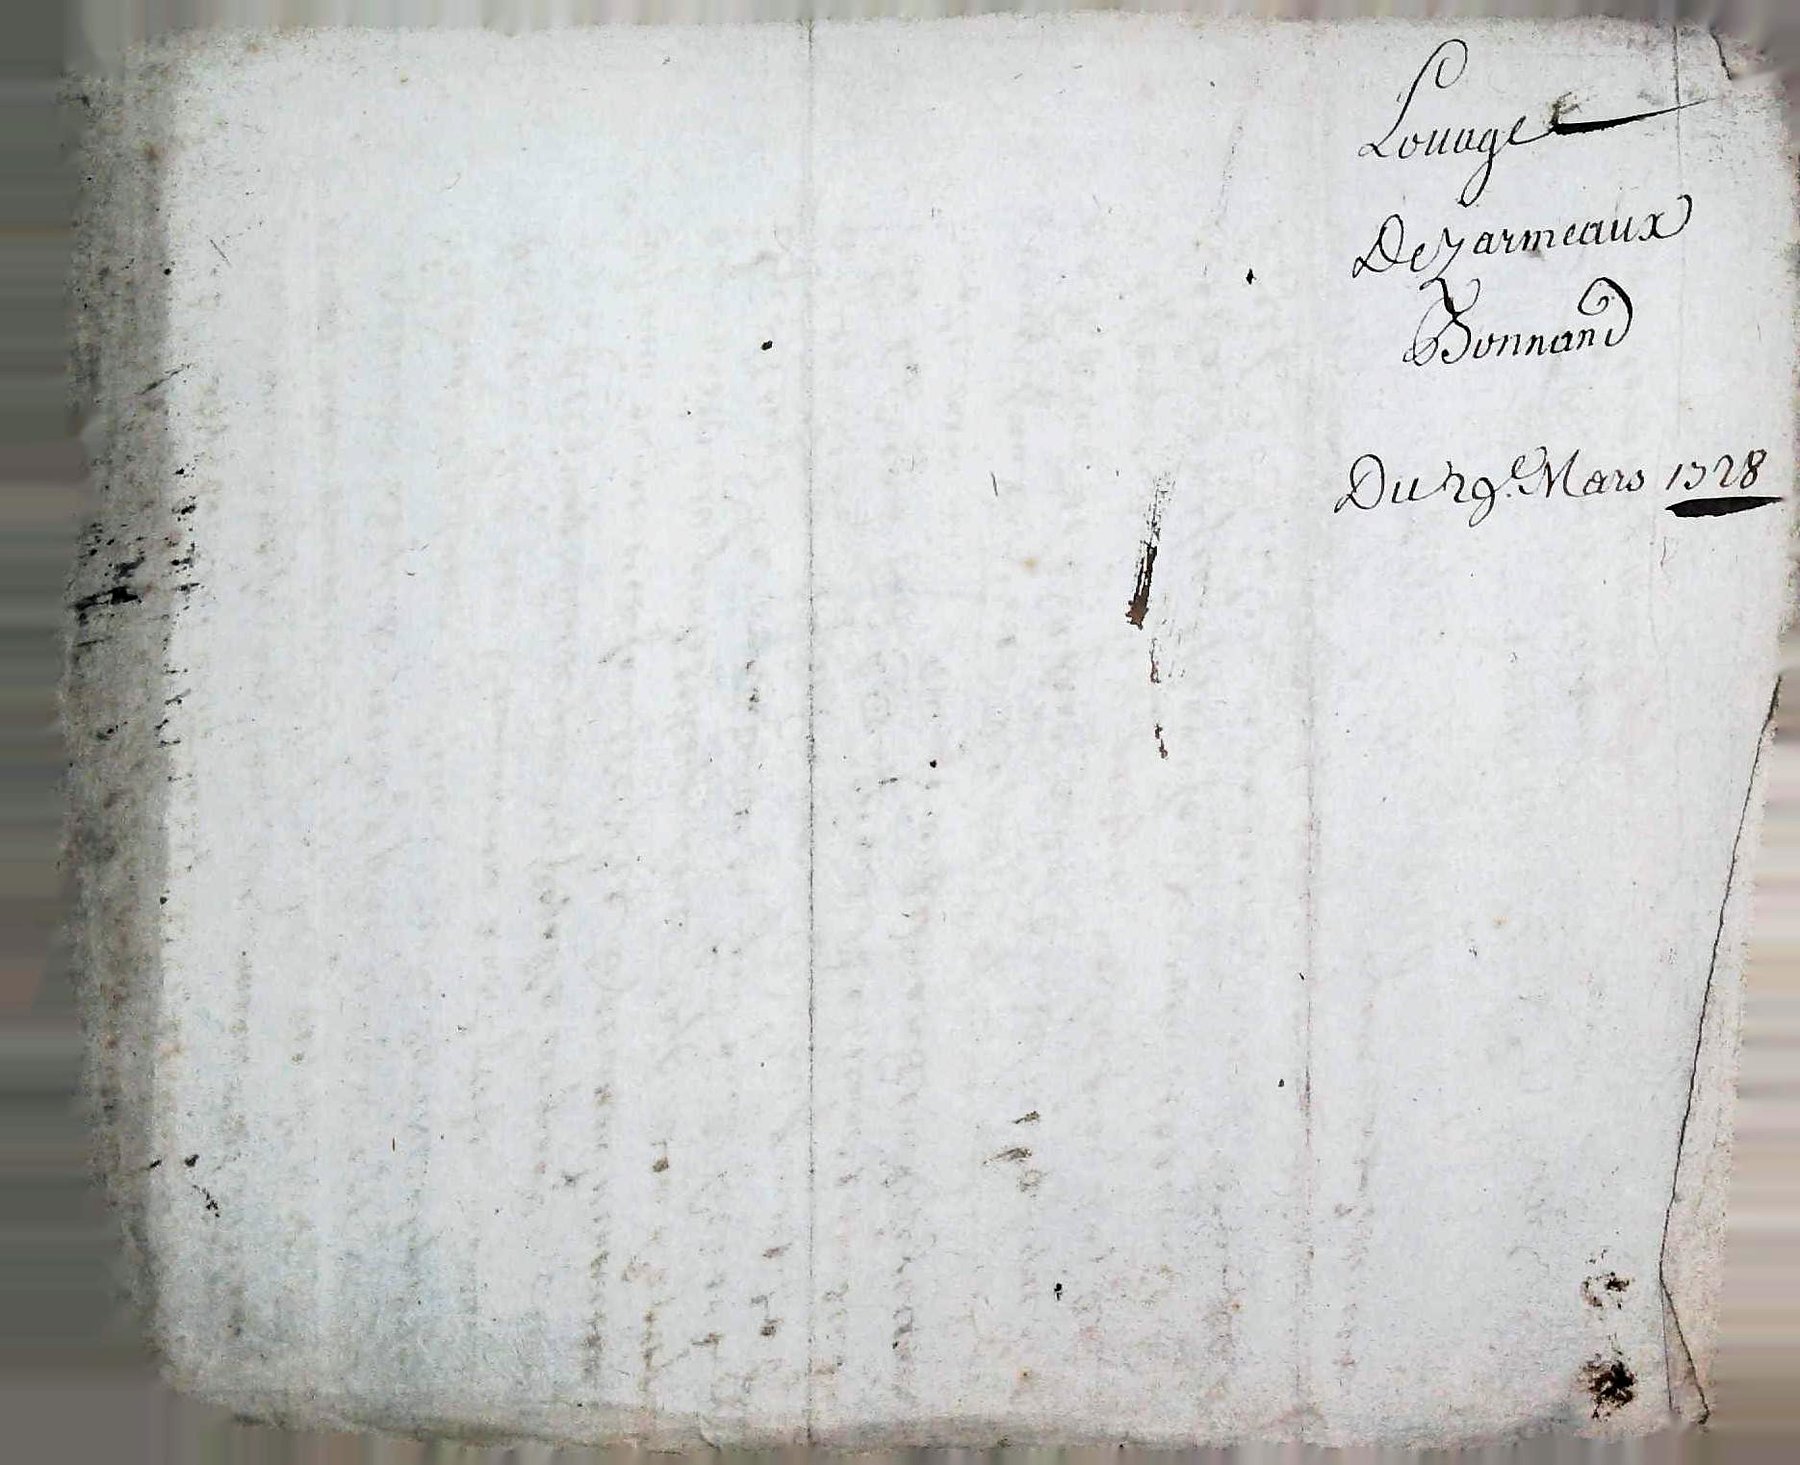 Louage
Dezarmeaux
Bonnand
Du 29.e Mars 1728